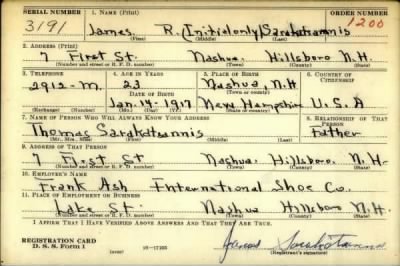 SERIAL NUMBER 1. NAME (Print) ORDER NUMBER
3191 James R. (Initial only) Sarakatsannis 1200
(First) (Middle) (Last)
2. ADDRESS (Print)
7 First St. Nashua Hillsboro N.H.
(Number and street or R. F. D. number) (Town) (County) (State)
3. TELEPHONE 4. AGE IN YEARS 5. PLACE OF BIRTH 6. COUNTRY OF CITIZENSHIP
2912-M. 23 Nashua, N.H.
DATE OF BIRTH (Town or county)
Jan. 14-1917 New Hampshire U.S.A
(Exchange) (Number) (Mo.) (Day) (Yr.) (State or country)
7. NAME OF PERSON WHO WILL ALWAYS KNOW YOUR ADDRESS 8. RELATIONSHIP OF THAT PERSON
Thomas Sarakatsannis Father
(Mr., Mrs., Miss) (First) (Middle) (Last)
9. ADDRESS OF THAT PERSON
7 First St Nashua, Hillsboro, N.H.
(Number and street or R. F. D. number) (Town) (County) (State)
10. EMPLOYER'S NAME
Frank Ash International Shoe Co.
11. PLACE OF EMPLOYMENT OR BUSINESS
Lake St. Nashua Hillsboro N.H.
(Number and street or R. F. D. number) (Town) (County) (State)
I AFFIRM THAT I HAVE VERIFIED ABOVE ANSWERS AND THAT THEY ARE TRUE.
REGISTRATION CARD
D. S. S. Form 1 (over) 16-17105 James Sarakatsannis
(Registrant's signature)